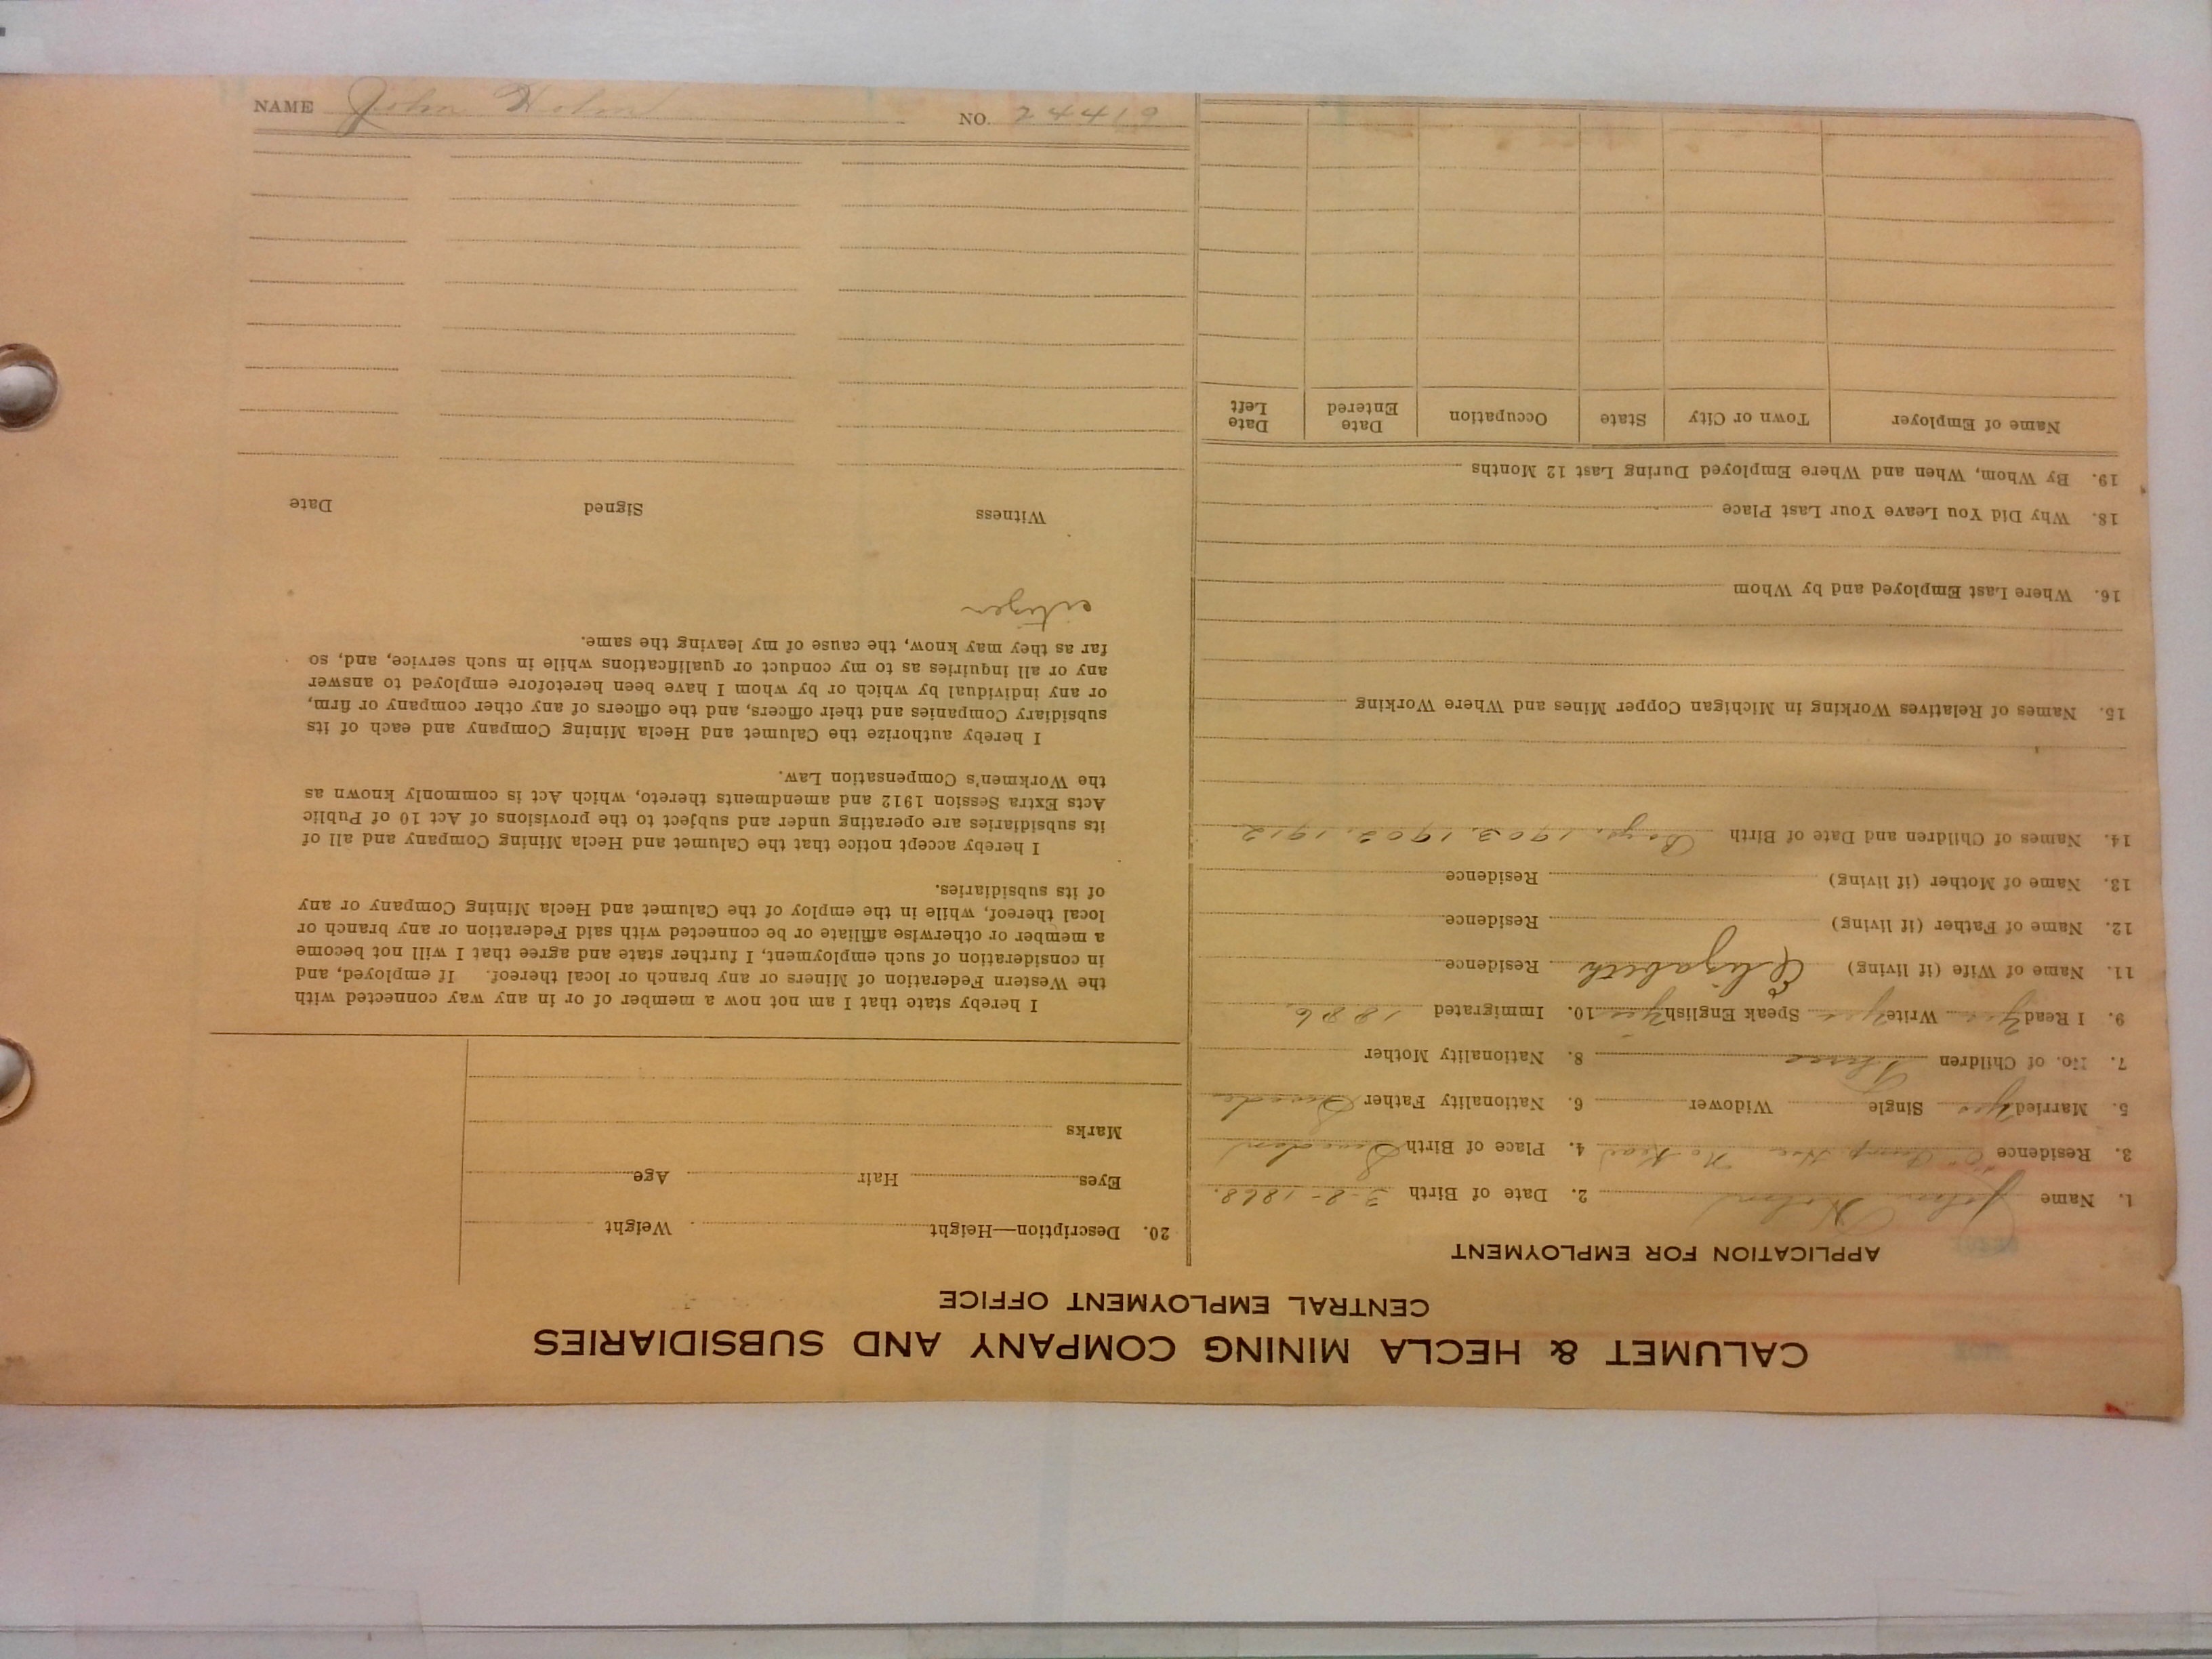 CALUMET & HECLA MINING COMPANY AND SUBSIDIARIES
CENTRAL EMPLOYMENT OFFICE
APPLICATION FOR EMPLOYMENT
1. Name John Holm 2. Date of Birth 3-8-1868.
3. Residence No. 4. Place of Birth Sweden
5. Married yes Single Widower 6. Nationality Father Swede
7. No. of Children Three 8. Nationality Mother
9. I Read yes Write yes Speak English yes 10. Immigrated 1886
11. Name of Wife (if living) Elizabeth Residence
12. Name of Father (if living) Residence
13. Name of Mother (if living) Residence
14. Names of Children and Date of Birth Boys. 1903. 1912
15. Names of Relatives Working in Michigan Copper Mines and Where Working
16. Where Last Employed and by Whom
18. Why Did You Leave Your Last Place
19. By Whom, When and Where Employed During Last 12 Months
Name of Employer Town or City State Occupation Date Entered Date Left
20. Description—Height Weight
Eyes Hair Age
Marks
I hereby state that I am not now a member of or in any way connected with
the Western Federation of Miners or any branch or local thereof. If employed, and
in consideration of such employment, I further state and agree that I will not become
a member or otherwise affiliate or be connected with said Federation or any branch or
local thereof, while in the employ of the Calumet and Hecla Mining Company or any
of its subsidiaries.
I hereby accept notice that the Calumet and Hecla Mining Company and all of
its subsidiaries are operating under and subject to the provisions of Act 10 of Public
Acts Extra Session 1912 and amendments thereto, which Act is commonly known as
the Workmen's Compensation Law.
I hereby authorize the Calumet and Hecla Mining Company and each of its
subsidiary Companies and their officers, and the officers of any other company or firm,
or any individual by which or by whom I have been heretofore employed to answer
any or all inquiries as to my conduct or qualifications while in such service, and, so
far as they may know, the cause of my leaving the same.
citizen
Witness Signed Date
NAME John Holm NO. 24419